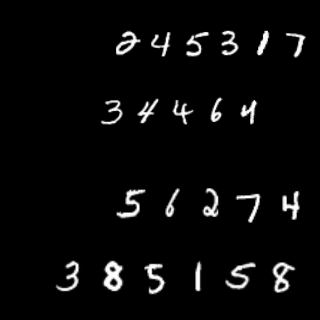 2 4 5 3 1 7
3 4 4 6 4
5 6 2 7 4
3 8 5 1 5 8